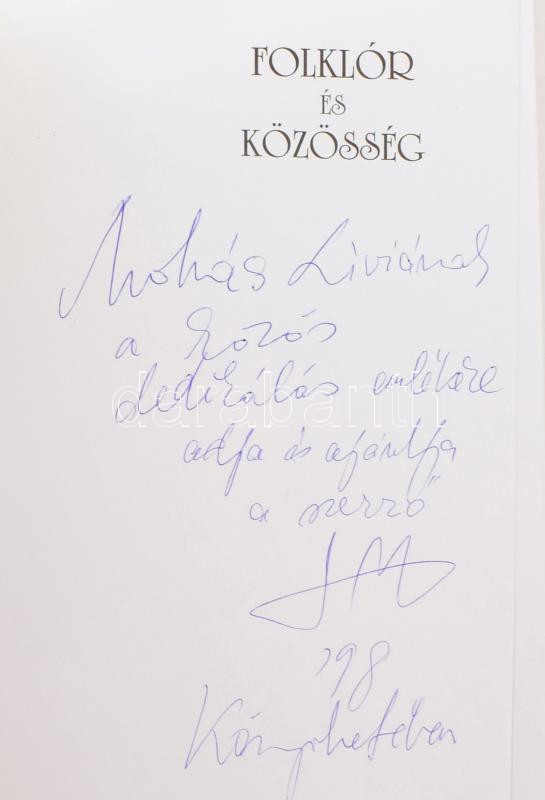 FOLKLÓR
ÉS
KÖZÖSSÉG
Mohás Líviának
a közös
dedikálás emlékére
darabanth
adja és ajánlja
a szerző
'98
Könyvhetében